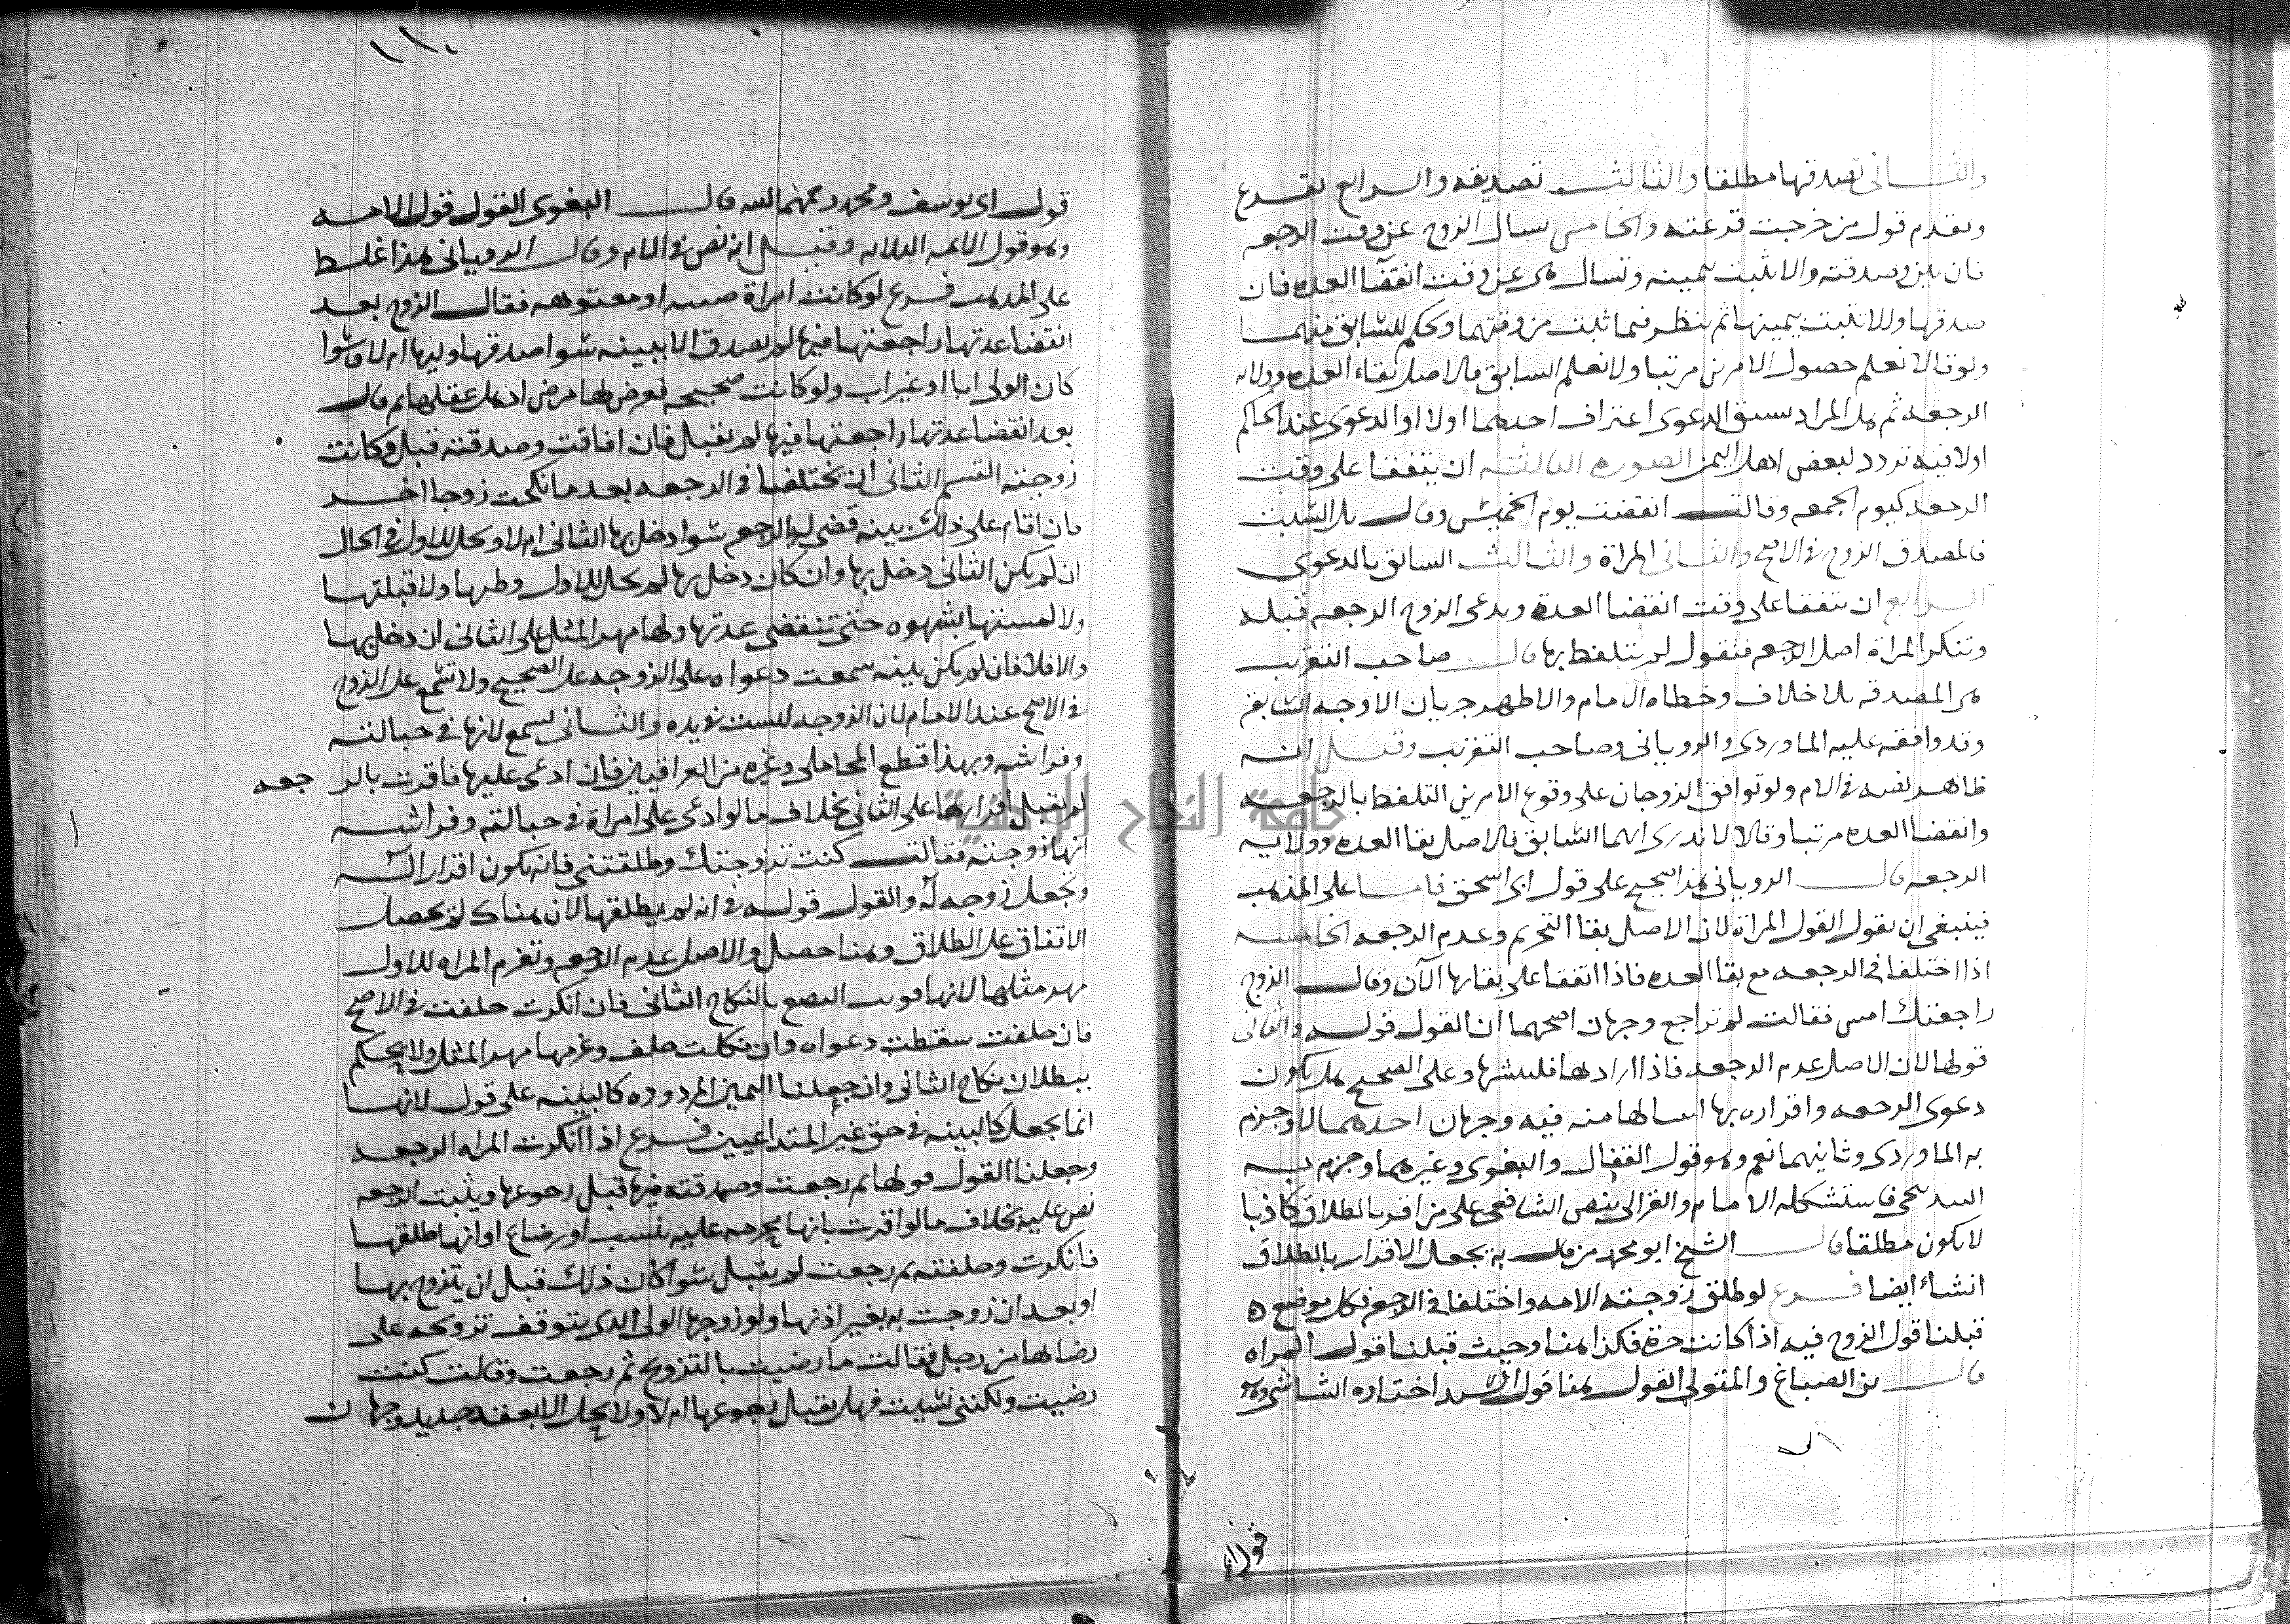 والثاني تصدقها مطلقا والثالث تصديقه والرابع يقرع
ويقدم قول من خرجت قرعته والخامس يسال الزوج عن وقت الرجعه
فان بين وصدقته والا ثبت بيمينه وتسال هي عن وقت انقضا العده فان
صدقها والا ثبت بيمينها ثم ينظر فيما ثبت من وقتهما وحكم للسابق منهما
ولو قالا نعلم حصول الامرين مرتبا ولا نعلم السابق فالاصل بقاء العده وولايه
الرجعه ثم هل المراد بسبق الدعوى اعتراف احدهما اولا او الدعوى عند الحاكم
اولا فيه تردد لبعض اهل اليمن الصوره الثالثه ان يتفقا على وقت
الرجعه كيوم الجمعه وقالت انقضت يوم الخميس وقال بل السبت
فالمصدق الزوج في الاصح والثاني المراة والثالث السابق بالدعوى
الرابع ان يتفقا على وقت انقضا العدة ويدعى الزوج الرجعه قبله
وتنكر المراة اصل الرجعه فتقول لم تتلفظ بها قال صاحب التقريب
هي المصدقه بلا خلاف وخطاه الامام والاظهر جريان الاوجه السابقه
وقد وافقه عليه الماوردي والروياني وصاحب التقريب وقيل انه
ظاهر نصه في الام ولو توافق الزوجان على وقوع الامرين التلفظ بالرجعه
وانقضا العده مرتبا وقالا لا ندري ايهما السابق فالاصل بقا العده وولايه
الرجعه قال الروياني هذا صحيح على قول ابي اسحق فاما على المذهب
فينبغي ان يقول القول المراة لان الاصل بقا التحريم وعدم الرجعه الخامسه
اذا اختلفا في الرجعه مع بقا العده فاذا اتفقا على بقائها الآن وقال الزوج
راجعتك امس فقالت لم تراجع وجهان اصحهما ان القول قوله والثاني
قولها لان الاصل عدم الرجعه فاذا ارادها فلينشئها وعلى الصحيح هل يكون
دعوى الرجعه واقراره بها انشا لها منه فيه وجهان احدهما لا وجزم
به الماوردي وثانيهما نعم وهو قول القفال والبغوي وغيرهما وجزم به
السرخسي فاستشكله الامام والغزالي بنص الشافعي على من اقر بالطلاق كاذبا
لا يكون مطلقا قال الشيخ ابو محمد من قال به يجعل الاقرار بالطلاق
انشاء ايضا فرع لو طلق زوجته الامه واختلفا في الرجعه فكل موضع
قبلنا قول الزوج فيه اذا كانت حرة فكذا هنا وحيث قبلنا قول المراه
قال بن الصباغ والمتولي القول هنا قول السيد اختاره الشاشي وهو
قول ابي
١١٠
قول ابي يوسف ومحمد رحمهما الله قال البغوي القول قول الامه
وهو قول الائمه الثلاثه وقيل انه نص في الام وقال الروياني هذا غلط
على المذهب فرع لو كانت امراة صبيه او معتوهه فقال الزوج بعد
انقضا عدتها راجعتها فيها لم يصدق الا ببينه سوا صدقها وليها ام لا وسوا
كان الولي ابا او غير اب ولو كانت صحيحه فعرض لها مرض اذهل عقلها ثم قال
بعد انقضا عدتها راجعتها فيها لم يقبل فان افاقت وصدقته قبل وكانت
زوجته القسم الثاني ان يختلفا في الرجعه بعد ما نكحت زوجا اخر
فان اقام على ذلك بينه قضي له بالرجعه سوا دخل بها الثاني ام لا وتحل للاول في الحال
ان لم يكن الثاني دخل بها وان كان دخل بها لم يحل للاول وطيها ولا قبلتها
ولا لمسها بشهوه حتى تنقضي عدتها ولها مهر المثل على الثاني ان دخل بها
والا فلا فان لم يكن بينه سمعت دعواه على الزوجه على الصحيح ولا تسمع على الزوج
في الاصح عند الامام لان الزوجه ليست في يده والثاني يسمع لانها في حبالته
وفراشه وبهذا قطع المحاملي وغيره من العراقيين فان ادعى عليها فاقرت بالرجعه
لم يقبل اقرارها على الثاني بخلاف ما لو ادعى على امراة في حبالته وفراشه
انها زوجته فقالت كنت تزوجتك وطلقتني فانه يكون اقرارا له
وتجعل زوجه له والقول قوله في انه لم يطلقها لان هناك لم يحصل
الاتفاق على الطلاق وهنا حصل والاصل عدم الرجعه وتغرم المراه للاول
مهر مثلها لانها فوتت البضع بالنكاح الثاني فان انكرت حلفت في الاصح
فان حلفت سقطت دعواه وان نكلت حلف وغرمها مهر المثل ولا يحكم
ببطلان نكاح الثاني وان جعلنا اليمين المردوده كالبينه على قول لانها
انما تجعل كالبينه في حق غير المتداعيين فرع اذا انكرت المراه الرجعه
وجعلنا القول قولها ثم رجعت وصدقته فيها قبل رجوعها ويثبت الرجعه
نص عليه بخلاف ما لو اقرت بانها محرمه عليه بنسب او رضاع او انها طلقها
فانكرت وحلفته ثم رجعت لم يقبل سوا كان ذلك قبل ان يتزوج بها
او بعد ان زوجت به بغير اذنها ولو زوجها الولي الذي يتوقف تزويجه على
رضاها من رجل فقالت ما رضيت بالتزويج ثم رجعت وقالت كنت
رضيت ولكنني نسيت فهل يقبل رجوعها ام لا ولا يحل الا بعقد جديد وجهان
جامعة النجاح الوطنية